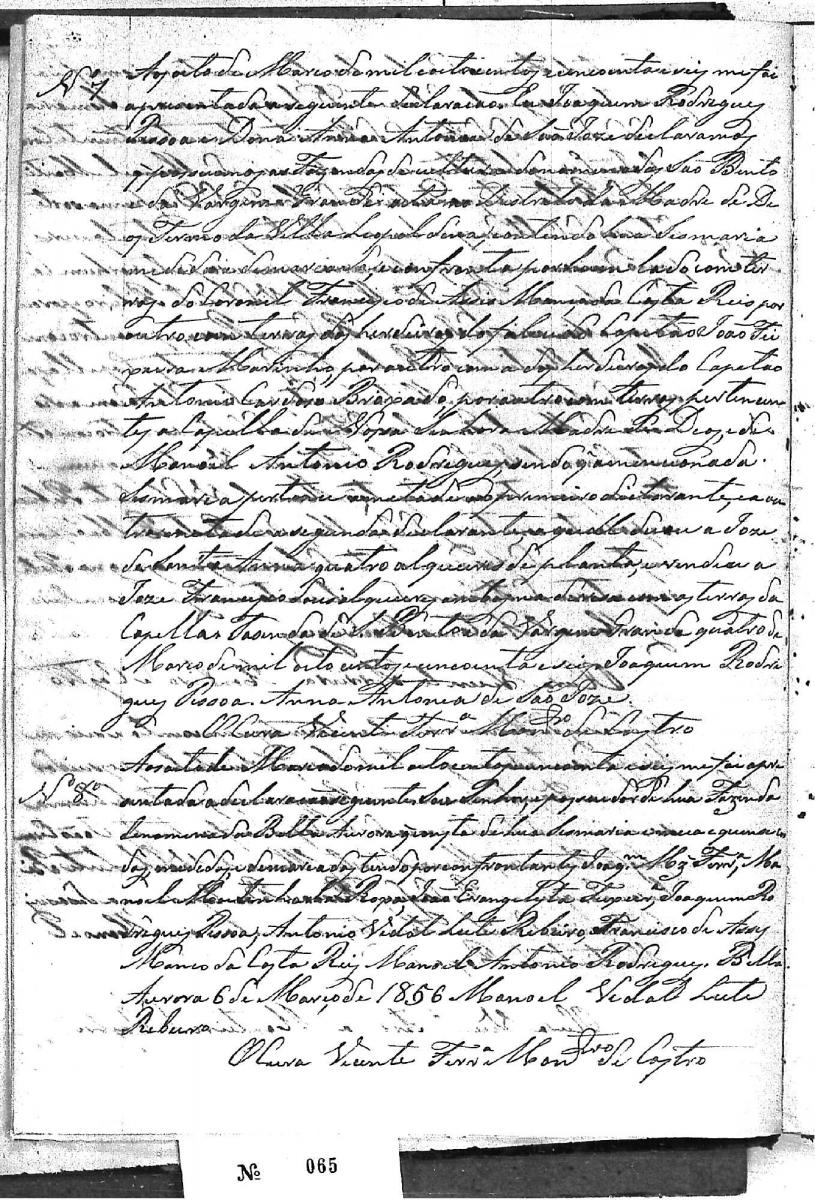 Nº 7
Aos oito de Março de mil oito centos e cincoenta e seis me foi
apresentada a seguinte declaração. Eu Joaquim Rodrigues
Pessoa e Dona Anna Antonia de São Joze declaramos
q possuimos Fazendas de cultura denominadas São Bento
e da Vargem Grande Districto da Madre de De
os Termo da Villa Leopoldina, contendo hua Sesmaria
medida e demarcada, e confronta por hum lado com ter
ras do Coronel Francisco de Assis Manço da Costa Reis por
outro com terras dos herdeiros do falecido Capitão João Tei
xeira Marinho, por outro com a dos herdeiros do Capitão
Antonio Cardozo Brozado, por outro com terras pertencen
tes a Capella de Nossa Senhora Madre de Deos, e de
Manoel Antonio Rodrigues, sendo q a mencionada
Sesmaria pertence ametade ao primeiro declarante, e a ou
tra metade a segunda declarante, a qual deu a Joze
de Santa Anna quatro alqueires de planta, e vendeu a
Joze Francisco dous alqueires, com as terras da
Capella. Fasenda de S. Bento e da Vargem Grande quatro de
Março de mil oito centos e cincoenta e seis. Joaquim Rodri
gues Pessoa. Anna Antonia de São Joze.
O Cura Vicente Ferrª Montrº de Castro
Nº 8º
Aos oito de Março de mil oito centos e cincoenta e seis me foi apre
sentada a declaração seguinte. Sou Senhor e possuidor de hua Fazenda
denominada Bella Aurora q consta de hua Sesmaria
medidas, e demarcadas, tendo por confrontantes Joaqm Mz Ferrª, Ma
noel Martinho da Roza, João Evangelista Teixeira, Joaquim Ro
drigues Pessoa, Antonio Vidal Leite Ribeiro, Francisco de Assis
Manço da Costa Reis, Manoel Antonio Rodrigues. Bella
Aurora 6 de Março de 1856 Manoel Vidal Leite
Ribeiro
O Cura Vicente Ferrª Montrº de Castro
№ 065